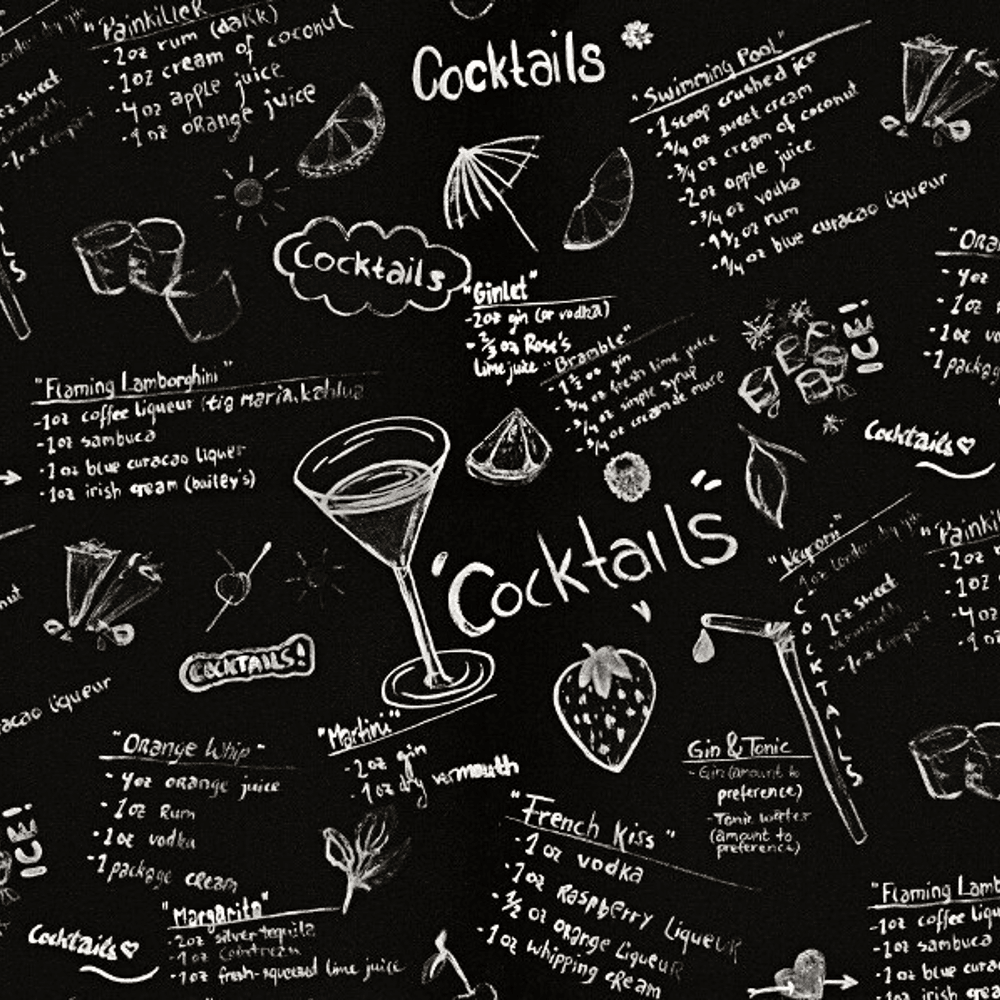 "Painkiller"
-2oz rum (dark)
-1oz cream of coconut
-4oz apple juice
-1oz orange juice
oz sweet
Cocktails
"Swimming Pool"
-1 scoop crushed ice
-1/4 oz sweet cream
-3/4 oz cream of coconut
-2oz apple juice
-3/4 oz vodka
-1 1/2 oz rum
-1/4 oz blue curacao liqueur
Cocktails
"Gimlet"
-2oz gin (or vodka)
-2/3 oz Rose's
lime juice
"Bramble"
-1 1/2 oz gin
-3/4 oz fresh lime juice
-3/4 oz simple syrup
-3/4 oz creamde mure
ICE!
"Ora
-4oz
-1oz
-1oz vo
-1package
"Flaming Lamborghini"
-1oz coffee liqueur (tia maria, kahlua
-1oz sambuca
-1oz blue curacao liquer
-1oz irish cream (bailey's)
Cocktails
"Cocktails"
COCKTAILS!
COCKTAILS
1oz sweet
"Painkil
-2oz
-1oz
-4oz
-1
acao liqueur
"Orange Whip"
-4oz orange juice
-1oz Rum
-1oz vodka
-1package cream
"Martini"
-2oz gin
-1oz dry vermouth
Gin & Tonic
-Gin (amount to
preference)
-Tonic water
(amount to
preference)
"French Kiss"
-1 oz vodka
-1oz Raspberry Liqueur
-1/2 oz orange Liqueur
-1oz whipping cream
ICE!
Cocktails
"Margarita"
-2oz silver tequila
-1oz Cointreau
-1oz fresh-squeezed lime juice
"Flaming Lamb
-1oz coffee liqu
-1oz sambuca
-1oz blue cura
-1oz irish crea